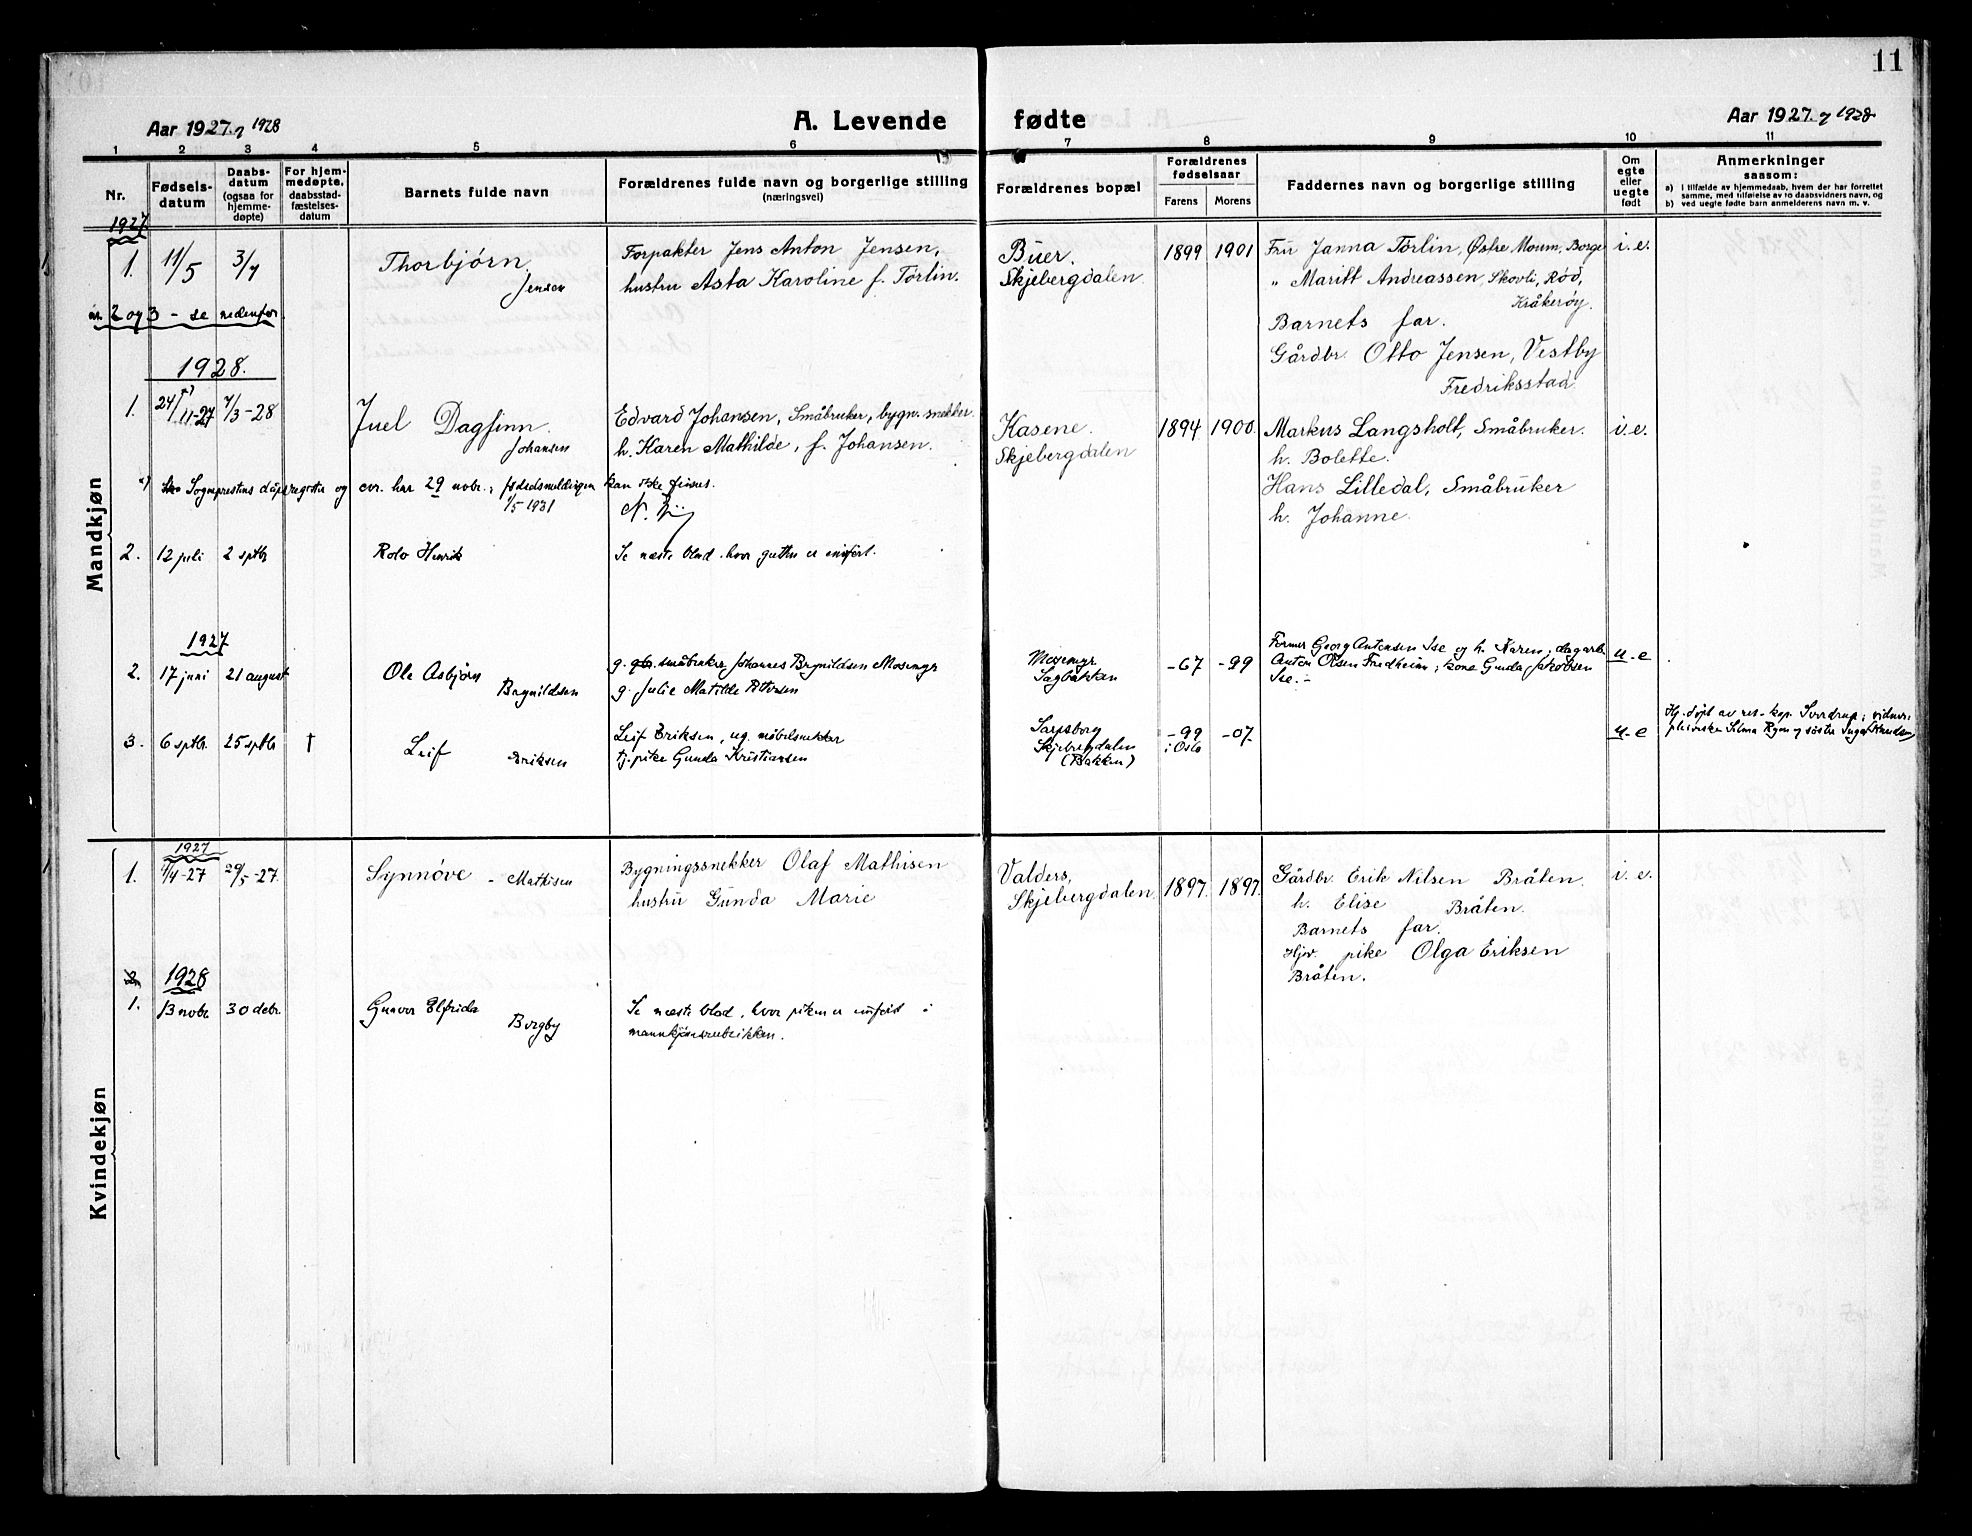 11
Aar 1927 og 1928
A. Levende fødte
Aar 1927 og 1928
1 2 3 4 5 6 7 8 9 10 11
Nr.
Fødsels-
datum
Daabs-
datum
(ogsaa for
hjemme-
døpte)
For hjem-
medøpte,
daabsstad-
fæstelses-
datum
Barnets fulde navn
Forældrenes fulde navn og borgerlige stilling
(næringsvei)
Forældrenes bopæl
Forældrenes
fødselsaar
Farens Morens
Faddernes navn og borgerlige stilling
Om
egte
eller
uegte
født
Anmerkninger
saasom:
a) i tilfælde av hjemmedaab, hvem der har forrettet
samme, med tilføielse av to daabsvidners navn, og
b) ved uegte fødte barn anmelderens navn m. v.
Mandkjøn
1927
1. 11/5 3/7 Thorbjørn Jensen
Forpakter Jens Anton Jensen,
hustru Asta Karoline f. Torlin.
Buer
Skjebergdalen
1899 1901
Fru Janna Torlin, Østre Moum, Borge
" Maritt Andreassen, Skovli, Rød,
Kråkerøy.
Barnets far.
Gårdbr. Otto Jensen, Vestby
Fredriksstad
i. e.
nr. 2 og 3 - se nedenfor
1928.
1. 24/11-27 4/3-28 Juel Dagfinn. Johansen
Edvard Johansen, Småbruker, bygn. snekker.
h. Karen Mathilde, f. Johansen.
Kasene.
Skjebergdalen
1894 1900
Markus Langsholt, Småbruker.
h. Bolette.
Hans Lilledal, Småbruker
h. Johanne.
i. e.
Sogneprestens dåpsregister og evr. har 29 nobr., fødselsmeldingen kan ikke finnes.
1/5-1931
2. 12 juli 2 sptbr Rolv Henrik
Se næste blad, hvor gutten er innført.
1927
2. 17 juni 21 august Ole Asbjørn Brynildsen
g. småbruker Johannes Brynildsen Mosemyr
g. Julie Matilde Pettersen
Mosemyr
Sagbakken
-67 -99
Former Georg Antonsen Ise og h. Karen; dagarb.
Anton Olsen Fredheim; kone Gunda Jakobsen
Ise.-
u-e
3. 6 sptbr. 25 sptbr † Leif Eriksen
Leif Eriksen, ug. møbelsnekker
tj. pike Gunda Kristiansen
Sarpsborg
Skjebergdalen
(Bakken)
-99 -07
i Oslo
u-e
Hj.døpt av res. kap. Sverdrup; vidner:
pleierske Silma Ryen og søster Inga Knudsen
Kvindekjøn
1927
1. 4/4-27 29/5-27 Synnøve - Mathisen
Bygningssnekker Olaf Mathisen
hustru Gunda Marie
Valders,
Skjebergdalen
1897. 1897.
Gårdbr. Erik Nilsen Bråten.
h. Elise Bråten.
Barnets far.
Hjv. pike Olga Eriksen
Bråten.
i. e.
1928
1. 13 nobr. 30 debr. Gunvor Elfrida Borgby
Se næste blad, hvor piken er innført i
mannkjønsrubrikken.